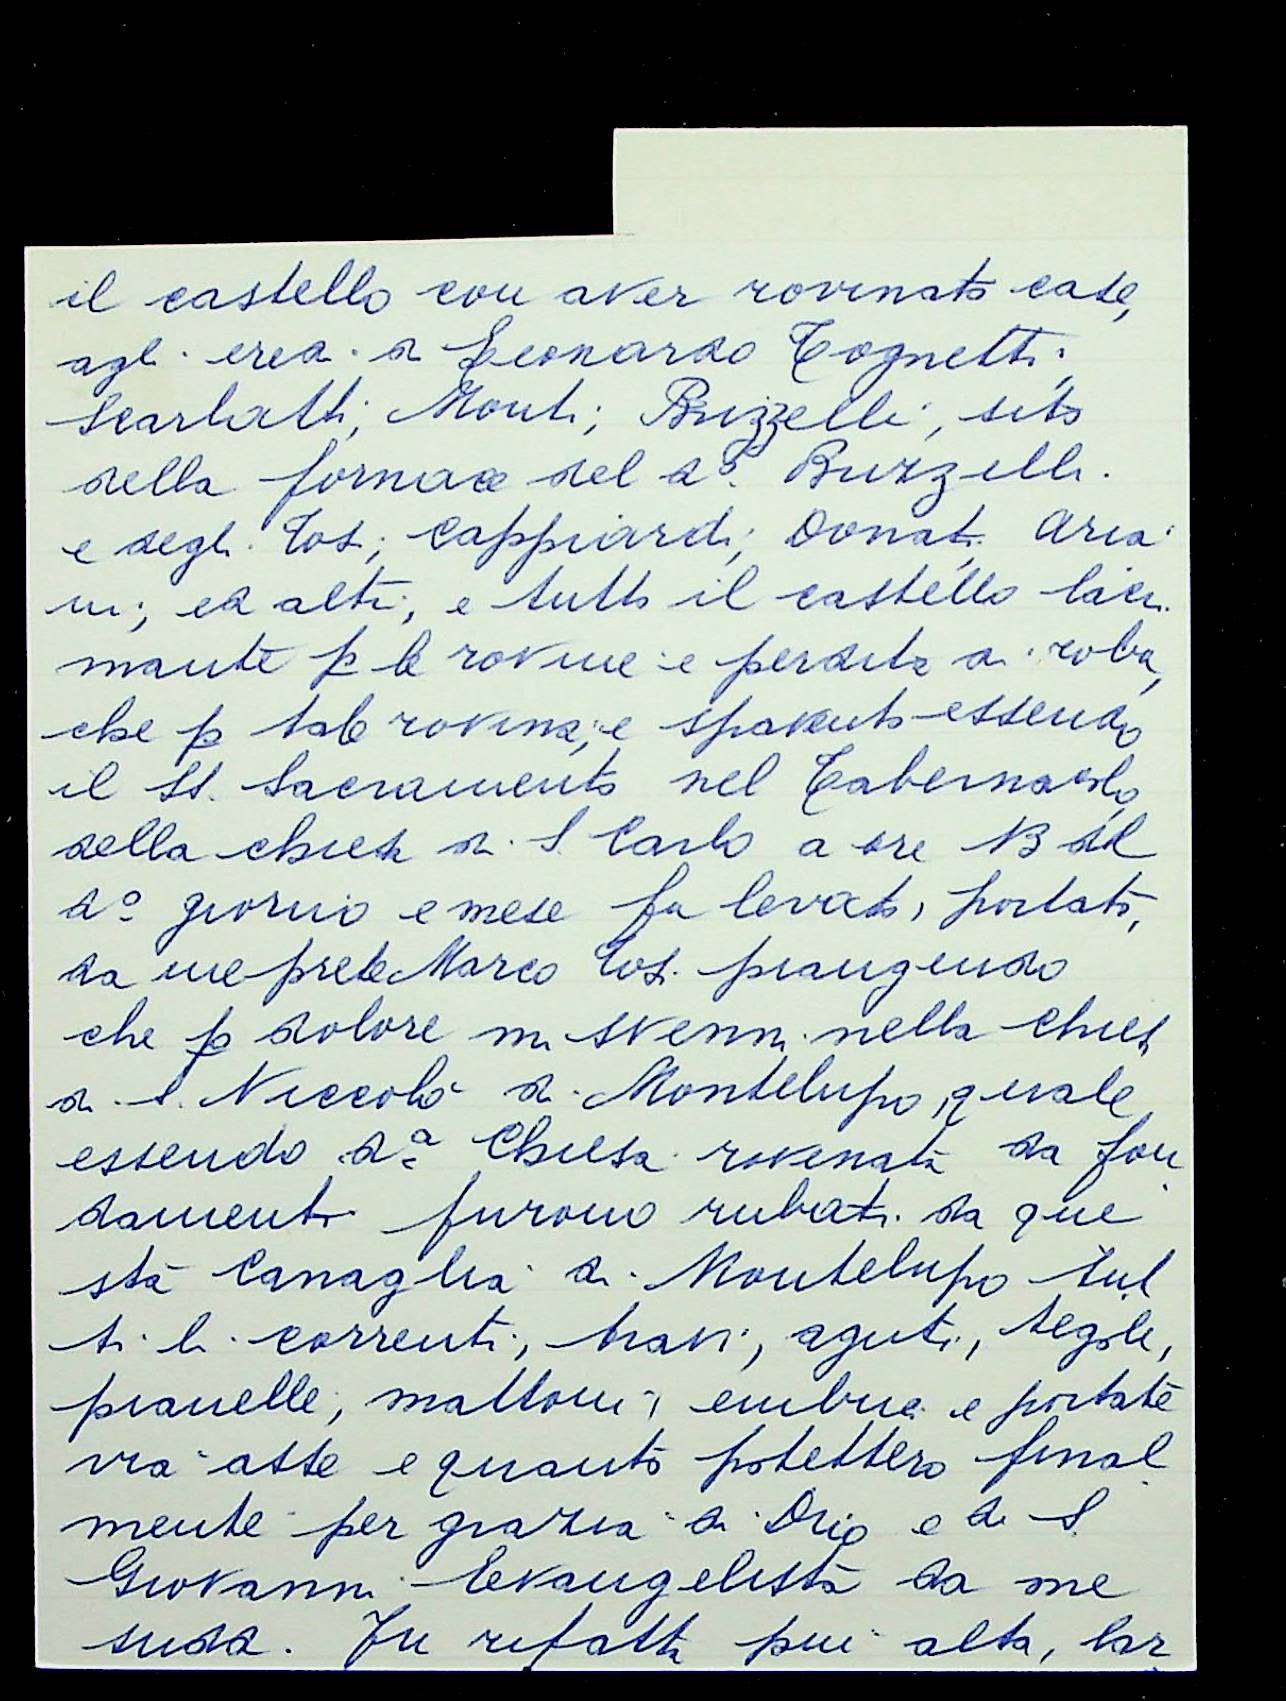 il castello con aver rovinato case,
agli eredi di Leonardo Tognetti;
Scarlatti; Monti; Buzzelli; sito
della fornace del d.º Buzzelli.
e degli Tosi; Cappiardi; Donati; Aria
ni; ed altri; e tutto il castello lacri
mante p le rovine e perdita di roba,
che p tale rovina, e spavento essendo
il SS. Sacramento nel Tabernacolo
della chiesa di S. Carlo a ore 13 del
d.º giorno e mese fu levato, portato,
da me prete Marco Tosi piangendo
che p dolore mi svenni nella chiesa
di S. Niccolò di Montelupo, quale
essendo d.ª Chiesa rovinata da fon
damenti furono rubati da que
sta Canaglia di Montelupo tut
ti li correnti, travi, aguti, tegole,
pianelle, mattoni, embrici e portate
via asse e quanto potettero final
mente per grazia di Dio e di S.
Giovanni Evangelista da me
sudd. Fu rifatta più alta, lar